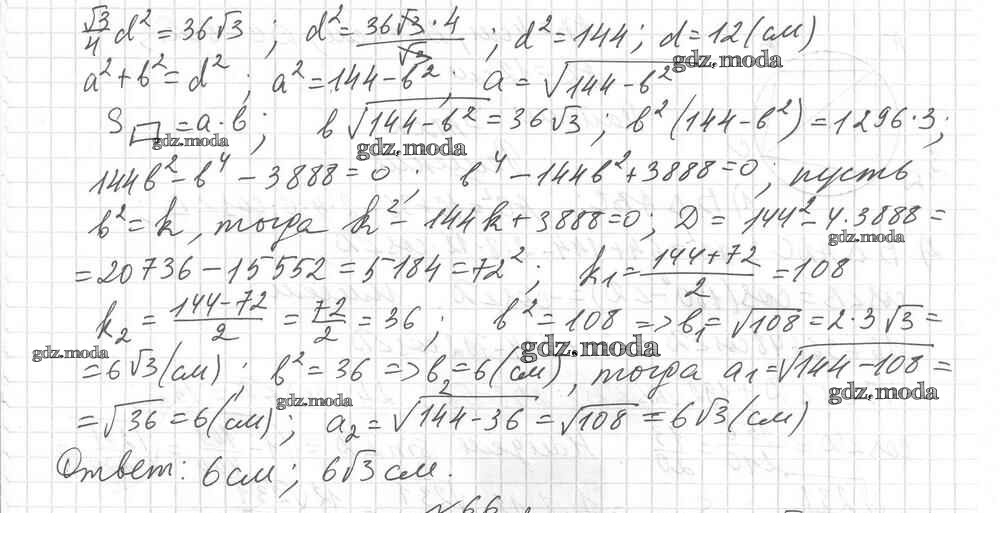 √3/4 d² = 36√3 ; d² = 36√3·4/√3 ; d² = 144; d = 12 (см)
gdz.moda
a² + b² = d² ; a² = 144 - b² ; a = √(144 - b²)
S▱ = a·b ; b√(144 - b²) = 36√3 ; b²(144 - b²) = 1296·3;
gdz.moda gdz.moda
144b² - b⁴ - 3888 = 0 ; b⁴ - 144b² + 3888 = 0 ; пусть
b² = k, тогда k² - 144k + 3888 = 0; D = 144² - 4·3888 =
gdz.moda
= 20736 - 15552 = 5184 = 72² ; k₁ = (144+72)/2 = 108
k₂ = (144-72)/2 = 72/2 = 36 ; b² = 108 => b₁ = √108 = 2·3√3 =
gdz.moda gdz.moda
= 6√3 (см) ; b² = 36 => b₂ = 6 (см), тогда a₁ = √(144 - 108) =
gdz.moda gdz.moda
= √36 = 6 (см) ; a₂ = √(144 - 36) = √108 = 6√3 (см)
Ответ: 6 см ; 6√3 см.